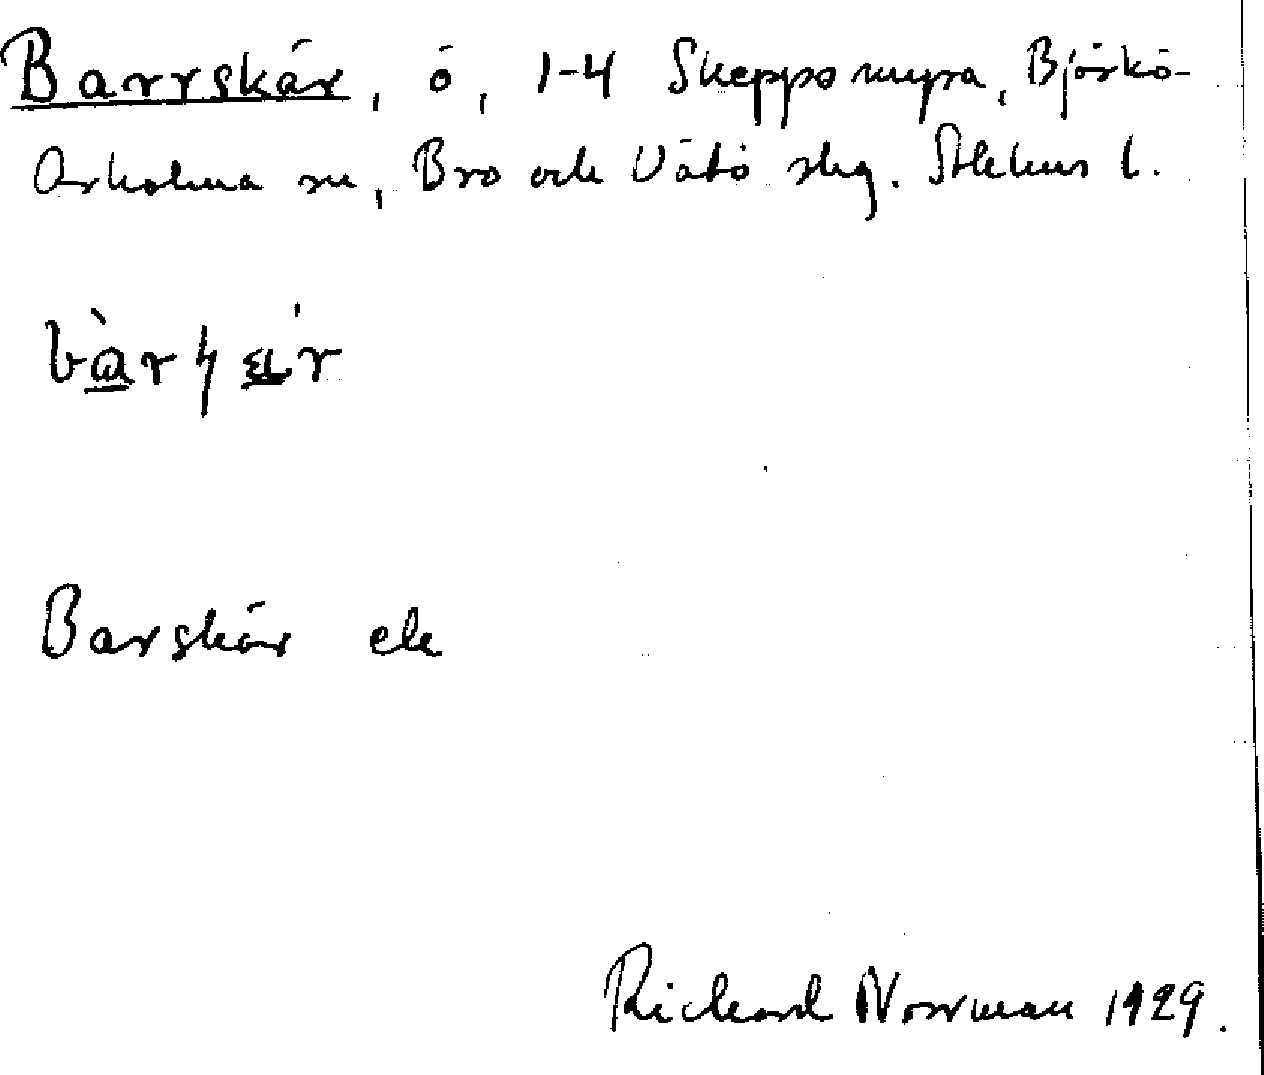 Barrskär, ö, 1-4 Skeppsmyra, Björkö-
Arholma sn, Bro och Vätö skg. Sthlms l.
Barskär ek
Richard Norrman 1929.